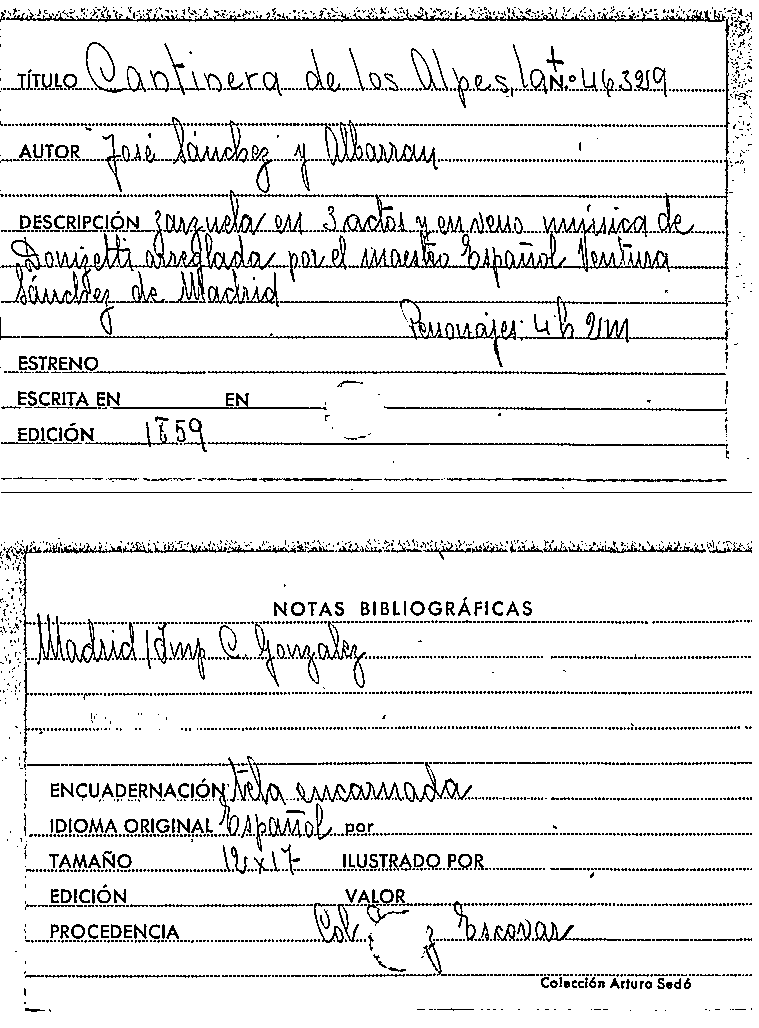 TÍTULO Cantinera de los Alpes, la + N.º 463219
AUTOR José Sánchez y Albarran
DESCRIPCIÓN zarzuela en 3 actos y en verso música de
Donizetti arreglada por el maestro Español Ventura
Sánchez de Madrid
Personajes: 4 h 2 m
ESTRENO
ESCRITA EN EN
EDICIÓN 1859
NOTAS BIBLIOGRÁFICAS
Madrid / Imp C. Gonzalez
ENCUADERNACIÓN tela encarnada
IDIOMA ORIGINAL Español por
TAMAÑO 12x17 ILUSTRADO POR
EDICIÓN VALOR
PROCEDENCIA Col y Escovar
Colección Arturo Sedó